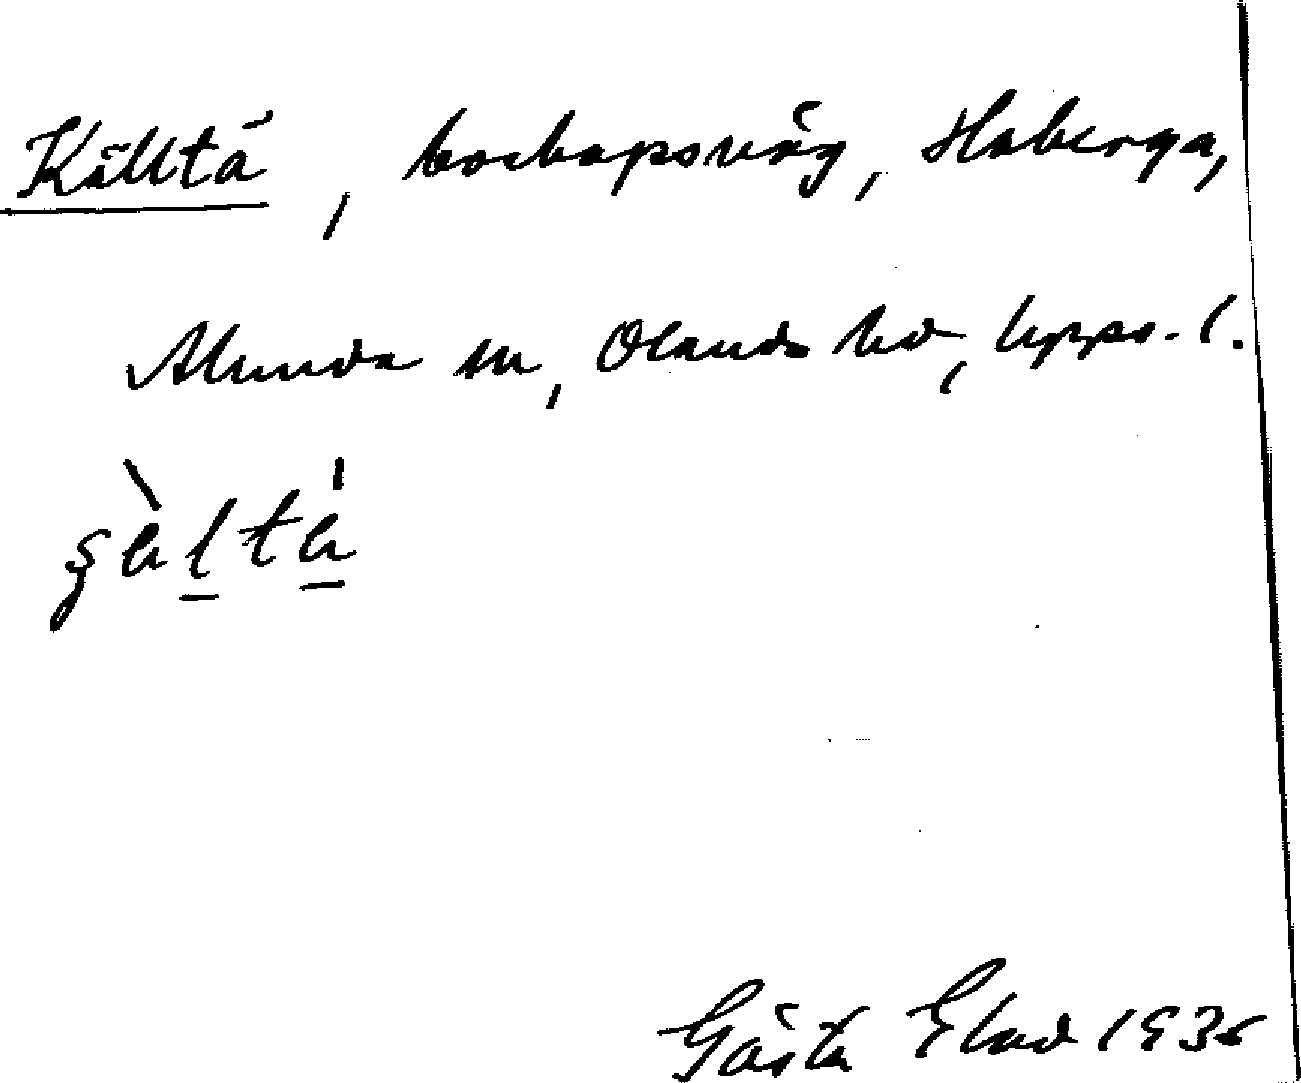 Källtä, boskapsväg, Haberga,
Alunda sn, Olands hd, Upps. l.
Gösta Ekod 1936